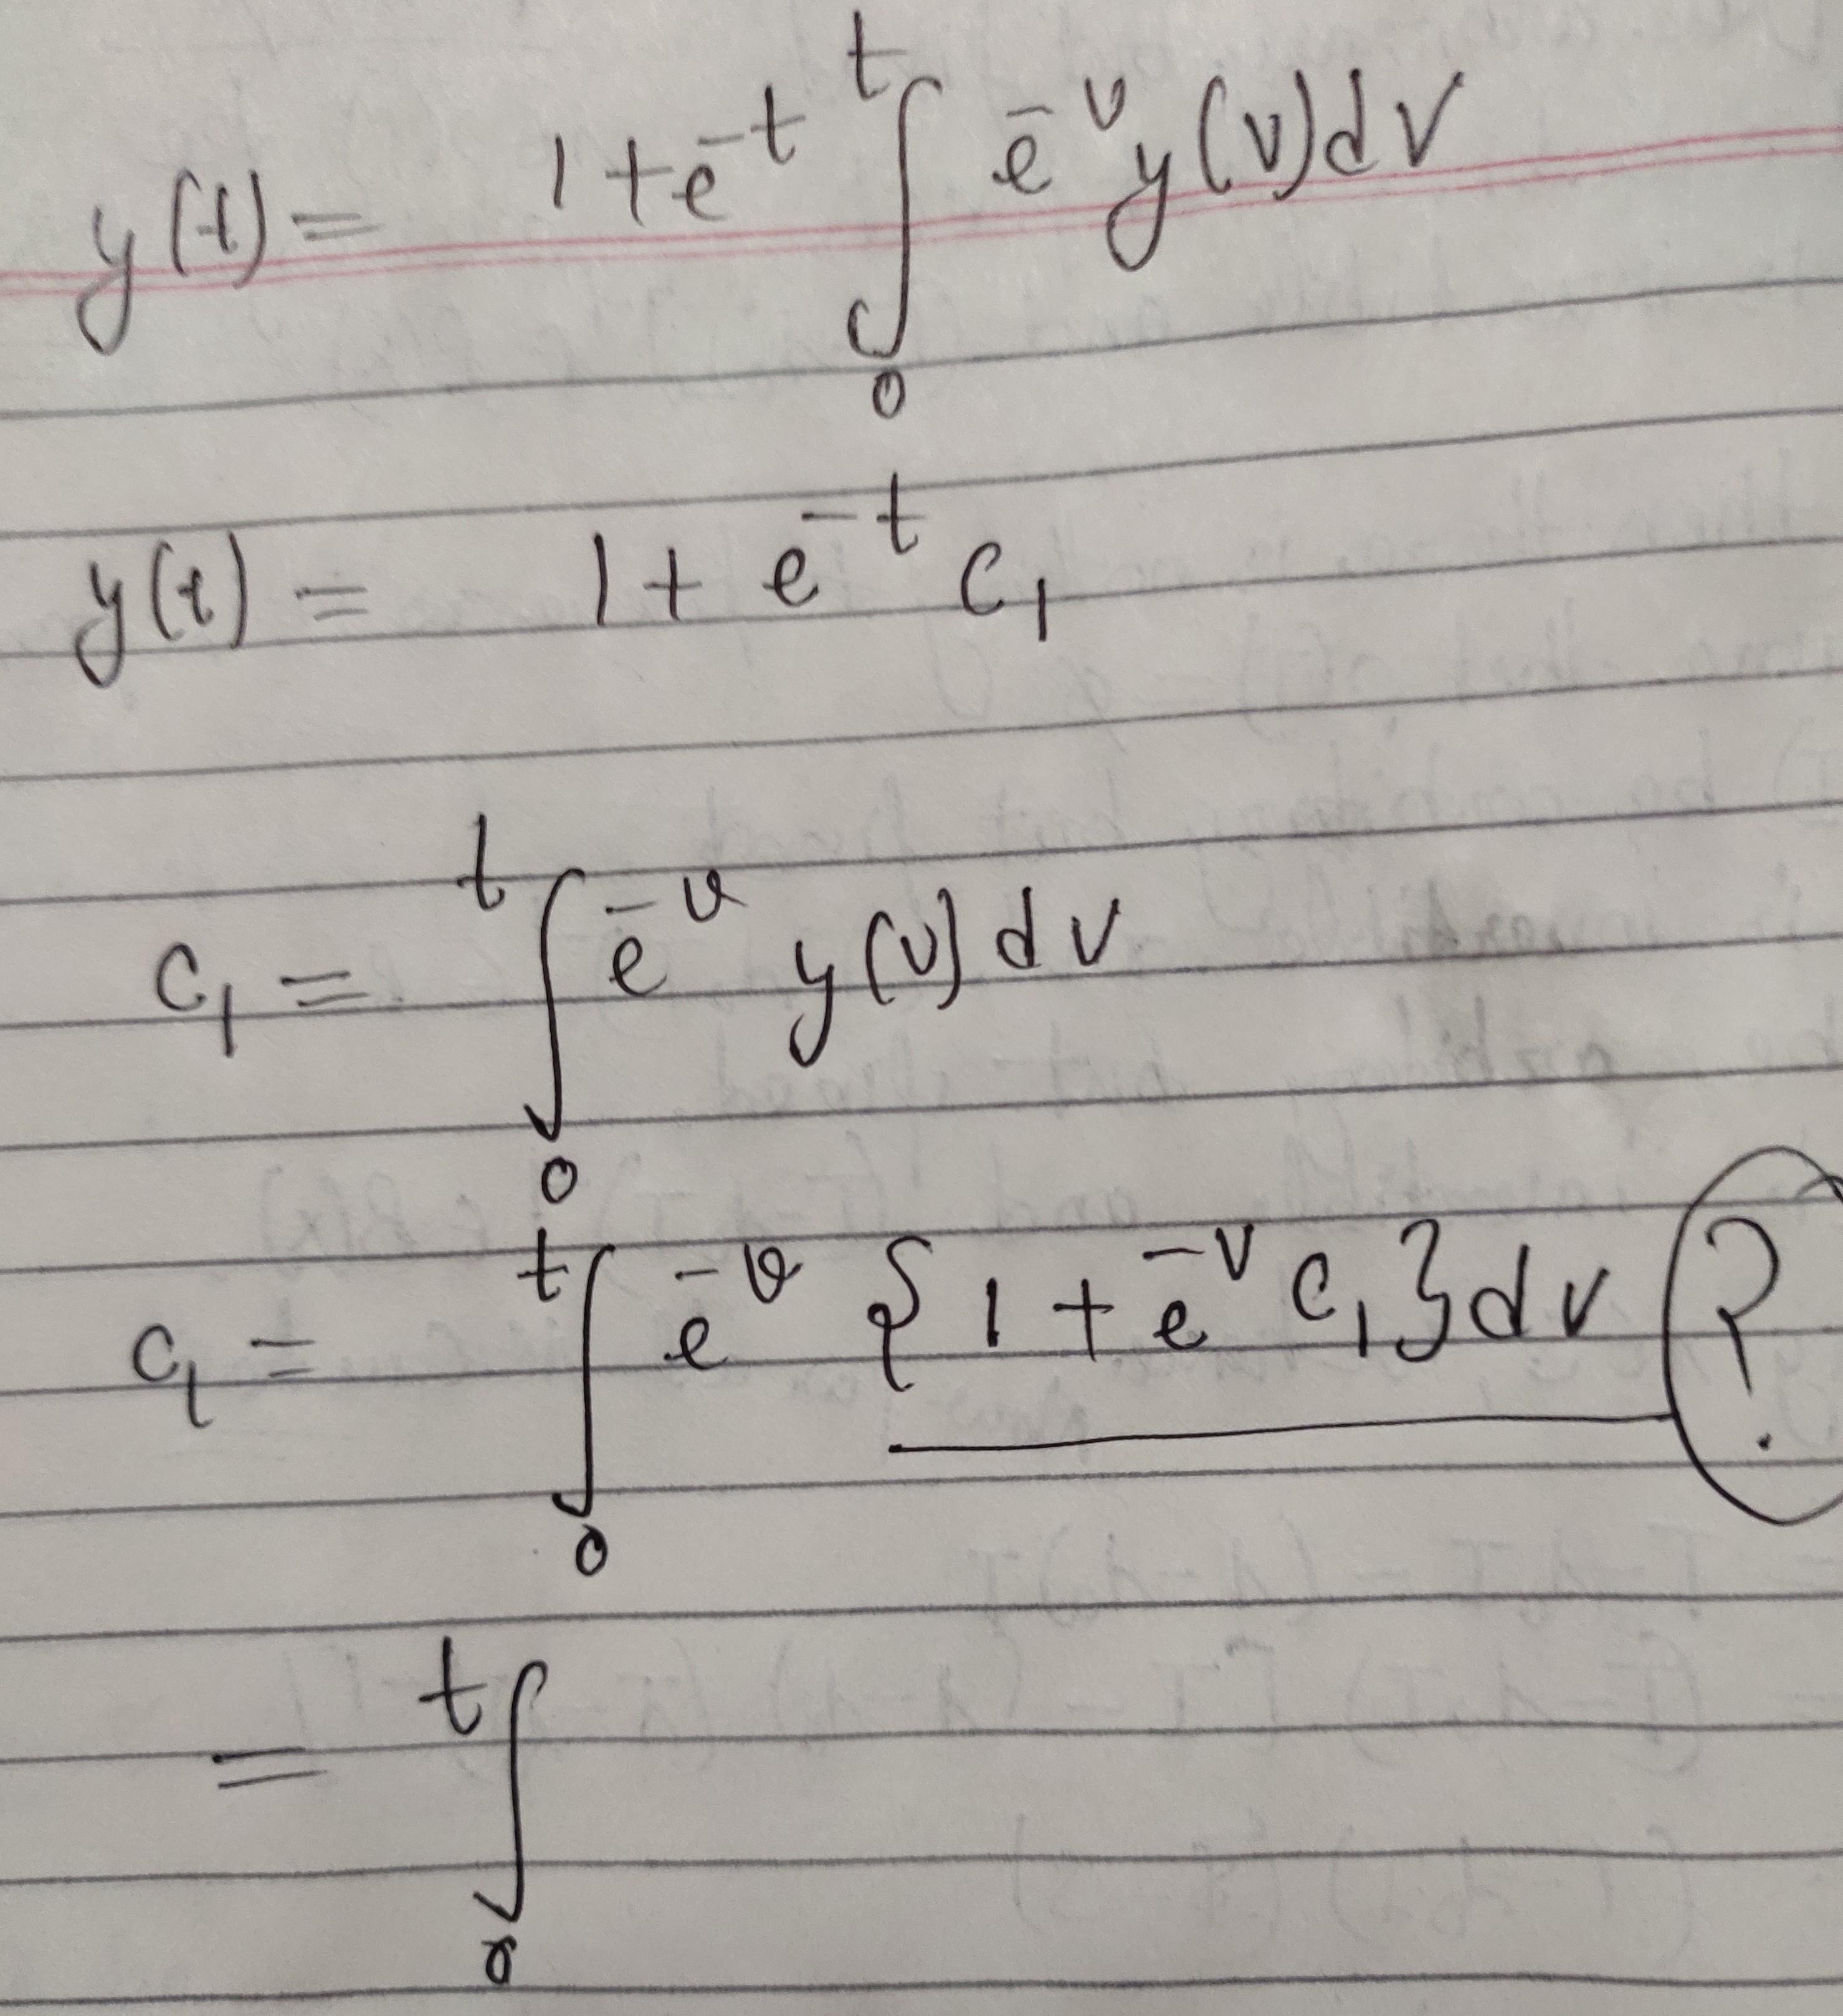 y(t) = 1 + e^{-t} ∫_0^t e^{-v} y(v) dv
y(t) = 1 + e^{-t} c_1
c_1 = ∫_0^t e^{-v} y(v) dv
c_1 = ∫_0^t e^{-v} {1 + e^{-v} c_1} dv ?
= ∫_0^t